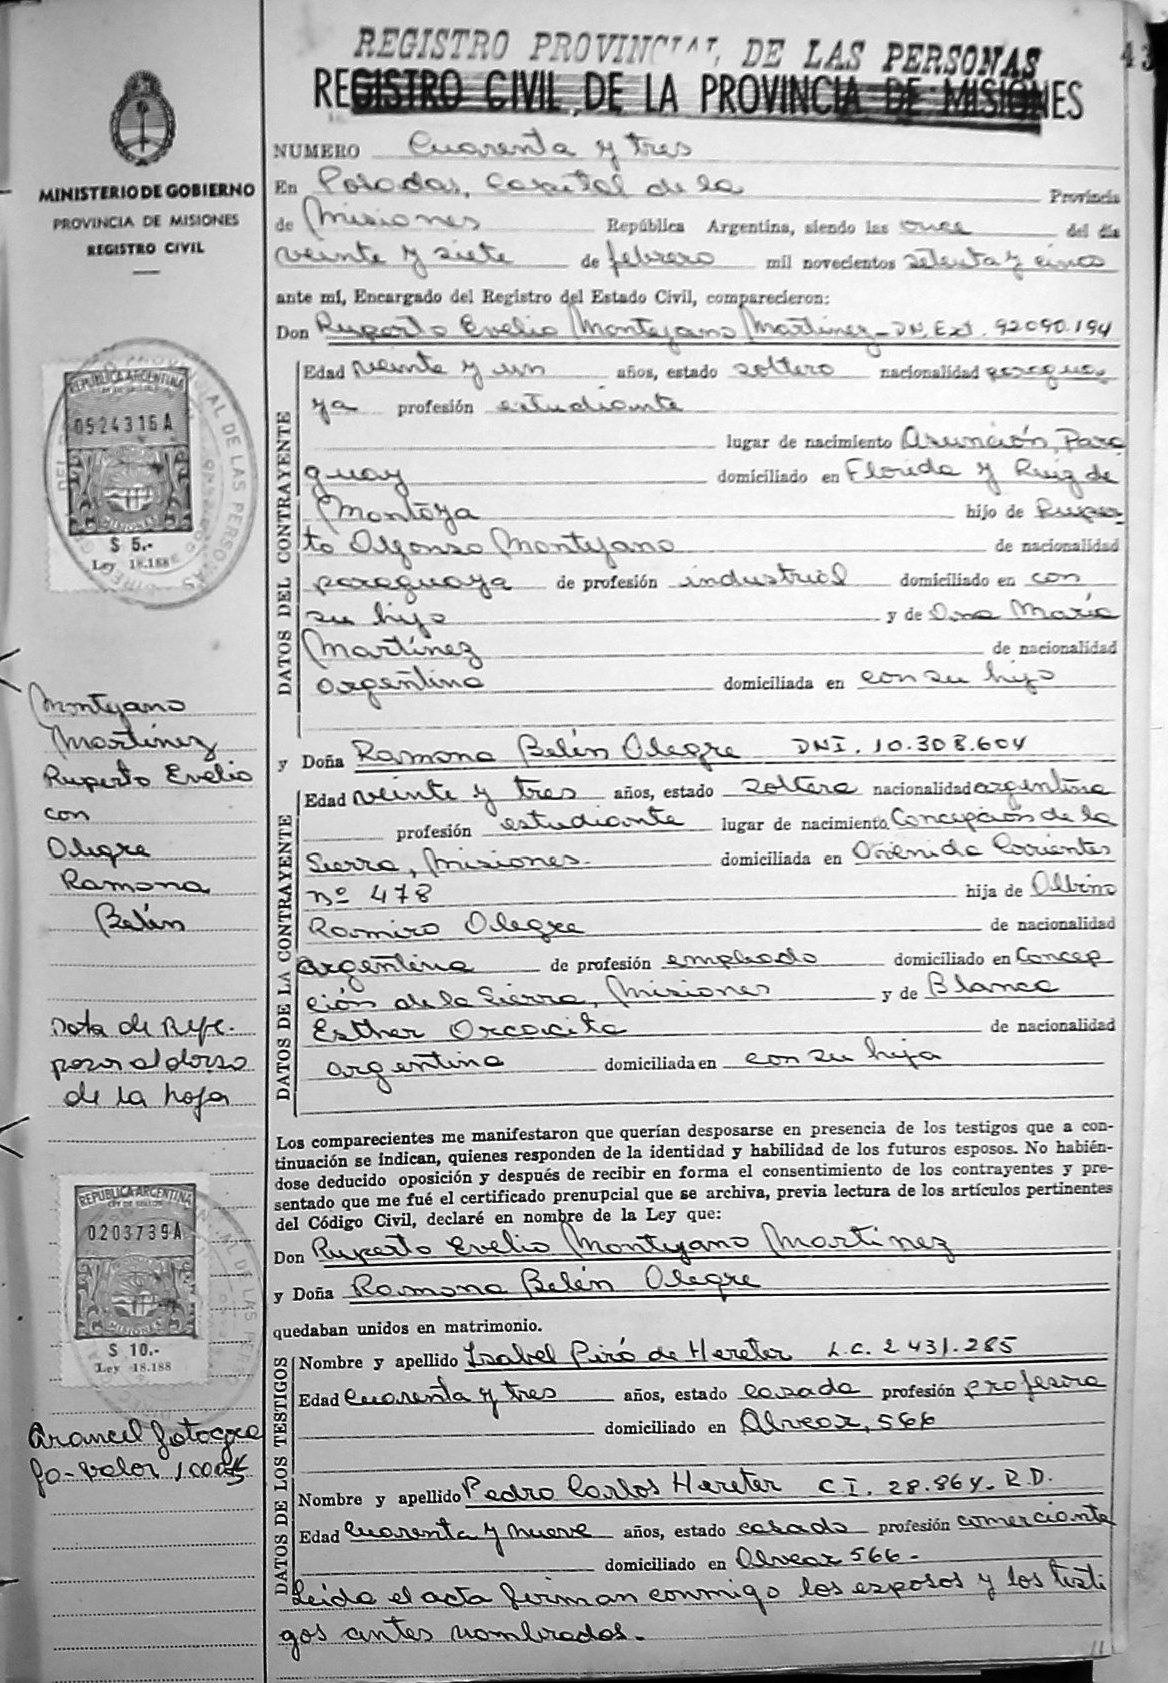 REGISTRO PROVINCIAL DE LAS PERSONAS
43
REGISTRO CIVIL DE LA PROVINCIA DE MISIONES
MINISTERIO DE GOBIERNO
PROVINCIA DE MISIONES
REGISTRO CIVIL
NUMERO Cuarenta y tres
En Posadas, Capital de la Provincia
de Misiones República Argentina, siendo las once del día
veinte y siete de febrero mil novecientos setenta y cinco
ante mí, Encargado del Registro del Estado Civil, comparecieron:
Don Ruperto Evelio Montejano Martinez - DN. Ext. 92090.194
DATOS DEL CONTRAYENTE
Edad veinte y un años, estado soltero nacionalidad paragua
ya profesión estudiante
lugar de nacimiento Asunción, Para
guay domiciliado en Florida y Ruiz de
Montoya hijo de Ruper
to Alfonso Montejano de nacionalidad
paraguaya de profesión industrial domiciliado en con
su hijo y de Ana María
Martínez de nacionalidad
argentina domiciliada en con su hijo
y Doña Ramona Belén Alegre DNI. 10.308.604
DATOS DE LA CONTRAYENTE
Edad veinte y tres años, estado soltera nacionalidad argentina
profesión estudiante lugar de nacimiento Concepción de la
Sierra, Misiones.- domiciliada en Avenida Corrientes
Nº 478 hija de Albino
Ramiro Alegre de nacionalidad
argentina de profesión empleado domiciliado en Concep
ción de la Sierra, Misiones y de Blanca
Esther de nacionalidad
argentina domiciliada en con su hija
Los comparecientes me manifestaron que querían desposarse en presencia de los testigos que a con-
tinuación se indican, quienes responden de la identidad y habilidad de los futuros esposos. No habién-
dose deducido oposición y después de recibir en forma el consentimiento de los contrayentes y pre-
sentado que me fué el certificado prenupcial que se archiva, previa lectura de los artículos pertinentes
del Código Civil, declaré en nombre de la Ley que:
Don Ruperto Evelio Montejano Martinez
y Doña Ramona Belén Alegre
quedaban unidos en matrimonio.
DATOS DE LOS TESTIGOS
Nombre y apellido Isabel Piró de Hereter L.C. 2 431.285
Edad cuarenta y tres años, estado casada profesión profesora
domiciliado en Alvear, 566
Nombre y apellido Pedro Carlos Hereter C.I. 28.864- R.D.
Edad cuarenta y nueve años, estado casado profesión comerciante
domiciliado en Alvear 566 -
Leída el acta firman conmigo los esposos y los testi
gos antes nombrados.-
REPUBLICA ARGENTINA
0524316A
MISIONES
$ 5.-
Ley 18.188
Montejano
Martínez
Ruperto Evelio
con
Alegre
Ramona
Belén
Nota de Refe.
pasar al dorso
de la hoja
REPUBLICA ARGENTINA
0203739A
MISIONES
$ 10.-
Ley 18.188
Arancel fotogra
fia - Valor